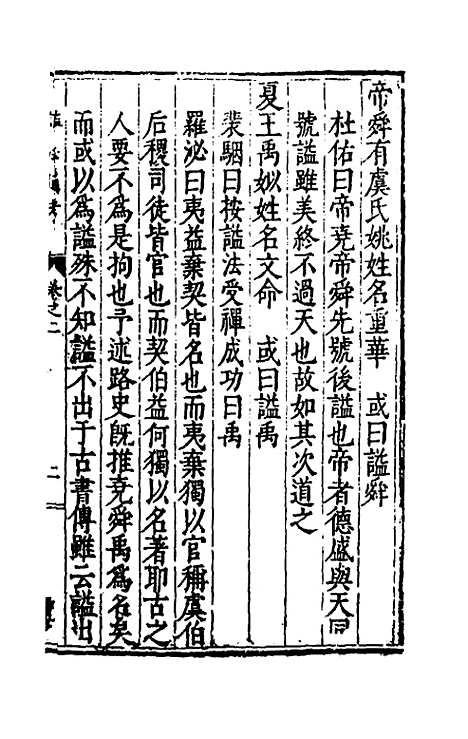 帝舜有虞氏姚姓名重華　或曰謚舜
杜佑曰帝堯帝舜先號後謚也帝者德盛與天同
號謚雖美終不過天也故如其次道之
夏王禹姒姓名文命　或曰謚禹
裴駰曰按謚法受禪成功曰禹
羅泌曰夷益棄契皆名也而夷棄獨以官稱虞伯
后稷司徒皆官也而契伯益何獨以名著耶古之
人要不為是拘也予述路史既推堯舜禹為名矣
而或以為謚殊不知謚不出于古書傳雖云謚出
考
卷之二
二